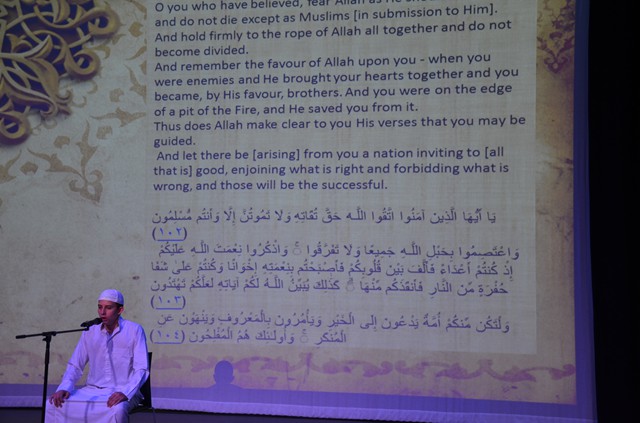 O you who have believed, fear Allah as He
and do not die except as Muslims [in submission to Him].
And hold firmly to the rope of Allah all together and do not
become divided.
And remember the favour of Allah upon you - when you
were enemies and He brought your hearts together and you
became, by His favour, brothers. And you were on the edge
of a pit of the Fire, and He saved you from it.
Thus does Allah make clear to you His verses that you may be
guided.
And let there be [arising] from you a nation inviting to [all
that is] good, enjoining what is right and forbidding what is
wrong, and those will be the successful.
يَا أَيُّهَا الَّذِينَ آمَنُوا اتَّقُوا اللَّـهَ حَقَّ تُقَاتِهِ وَلَا تَمُوتُنَّ إِلَّا وَأَنتُم مُّسْلِمُونَ
﴿١٠٢﴾
وَاعْتَصِمُوا بِحَبْلِ اللَّـهِ جَمِيعًا وَلَا تَفَرَّقُوا ۚ وَاذْكُرُوا نِعْمَتَ اللَّـهِ عَلَيْكُمْ
إِذْ كُنتُمْ أَعْدَاءً فَأَلَّفَ بَيْنَ قُلُوبِكُمْ فَأَصْبَحْتُم بِنِعْمَتِهِ إِخْوَانًا وَكُنتُمْ عَلَىٰ شَفَا
حُفْرَةٍ مِّنَ النَّارِ فَأَنقَذَكُم مِّنْهَا ۗ كَذَٰلِكَ يُبَيِّنُ اللَّـهُ لَكُمْ آيَاتِهِ لَعَلَّكُمْ تَهْتَدُونَ
﴿١٠٣﴾
وَلْتَكُن مِّنكُمْ أُمَّةٌ يَدْعُونَ إِلَى الْخَيْرِ وَيَأْمُرُونَ بِالْمَعْرُوفِ وَيَنْهَوْنَ عَنِ
الْمُنكَرِ ۚ وَأُولَـٰئِكَ هُمُ الْمُفْلِحُونَ ﴿١٠٤﴾